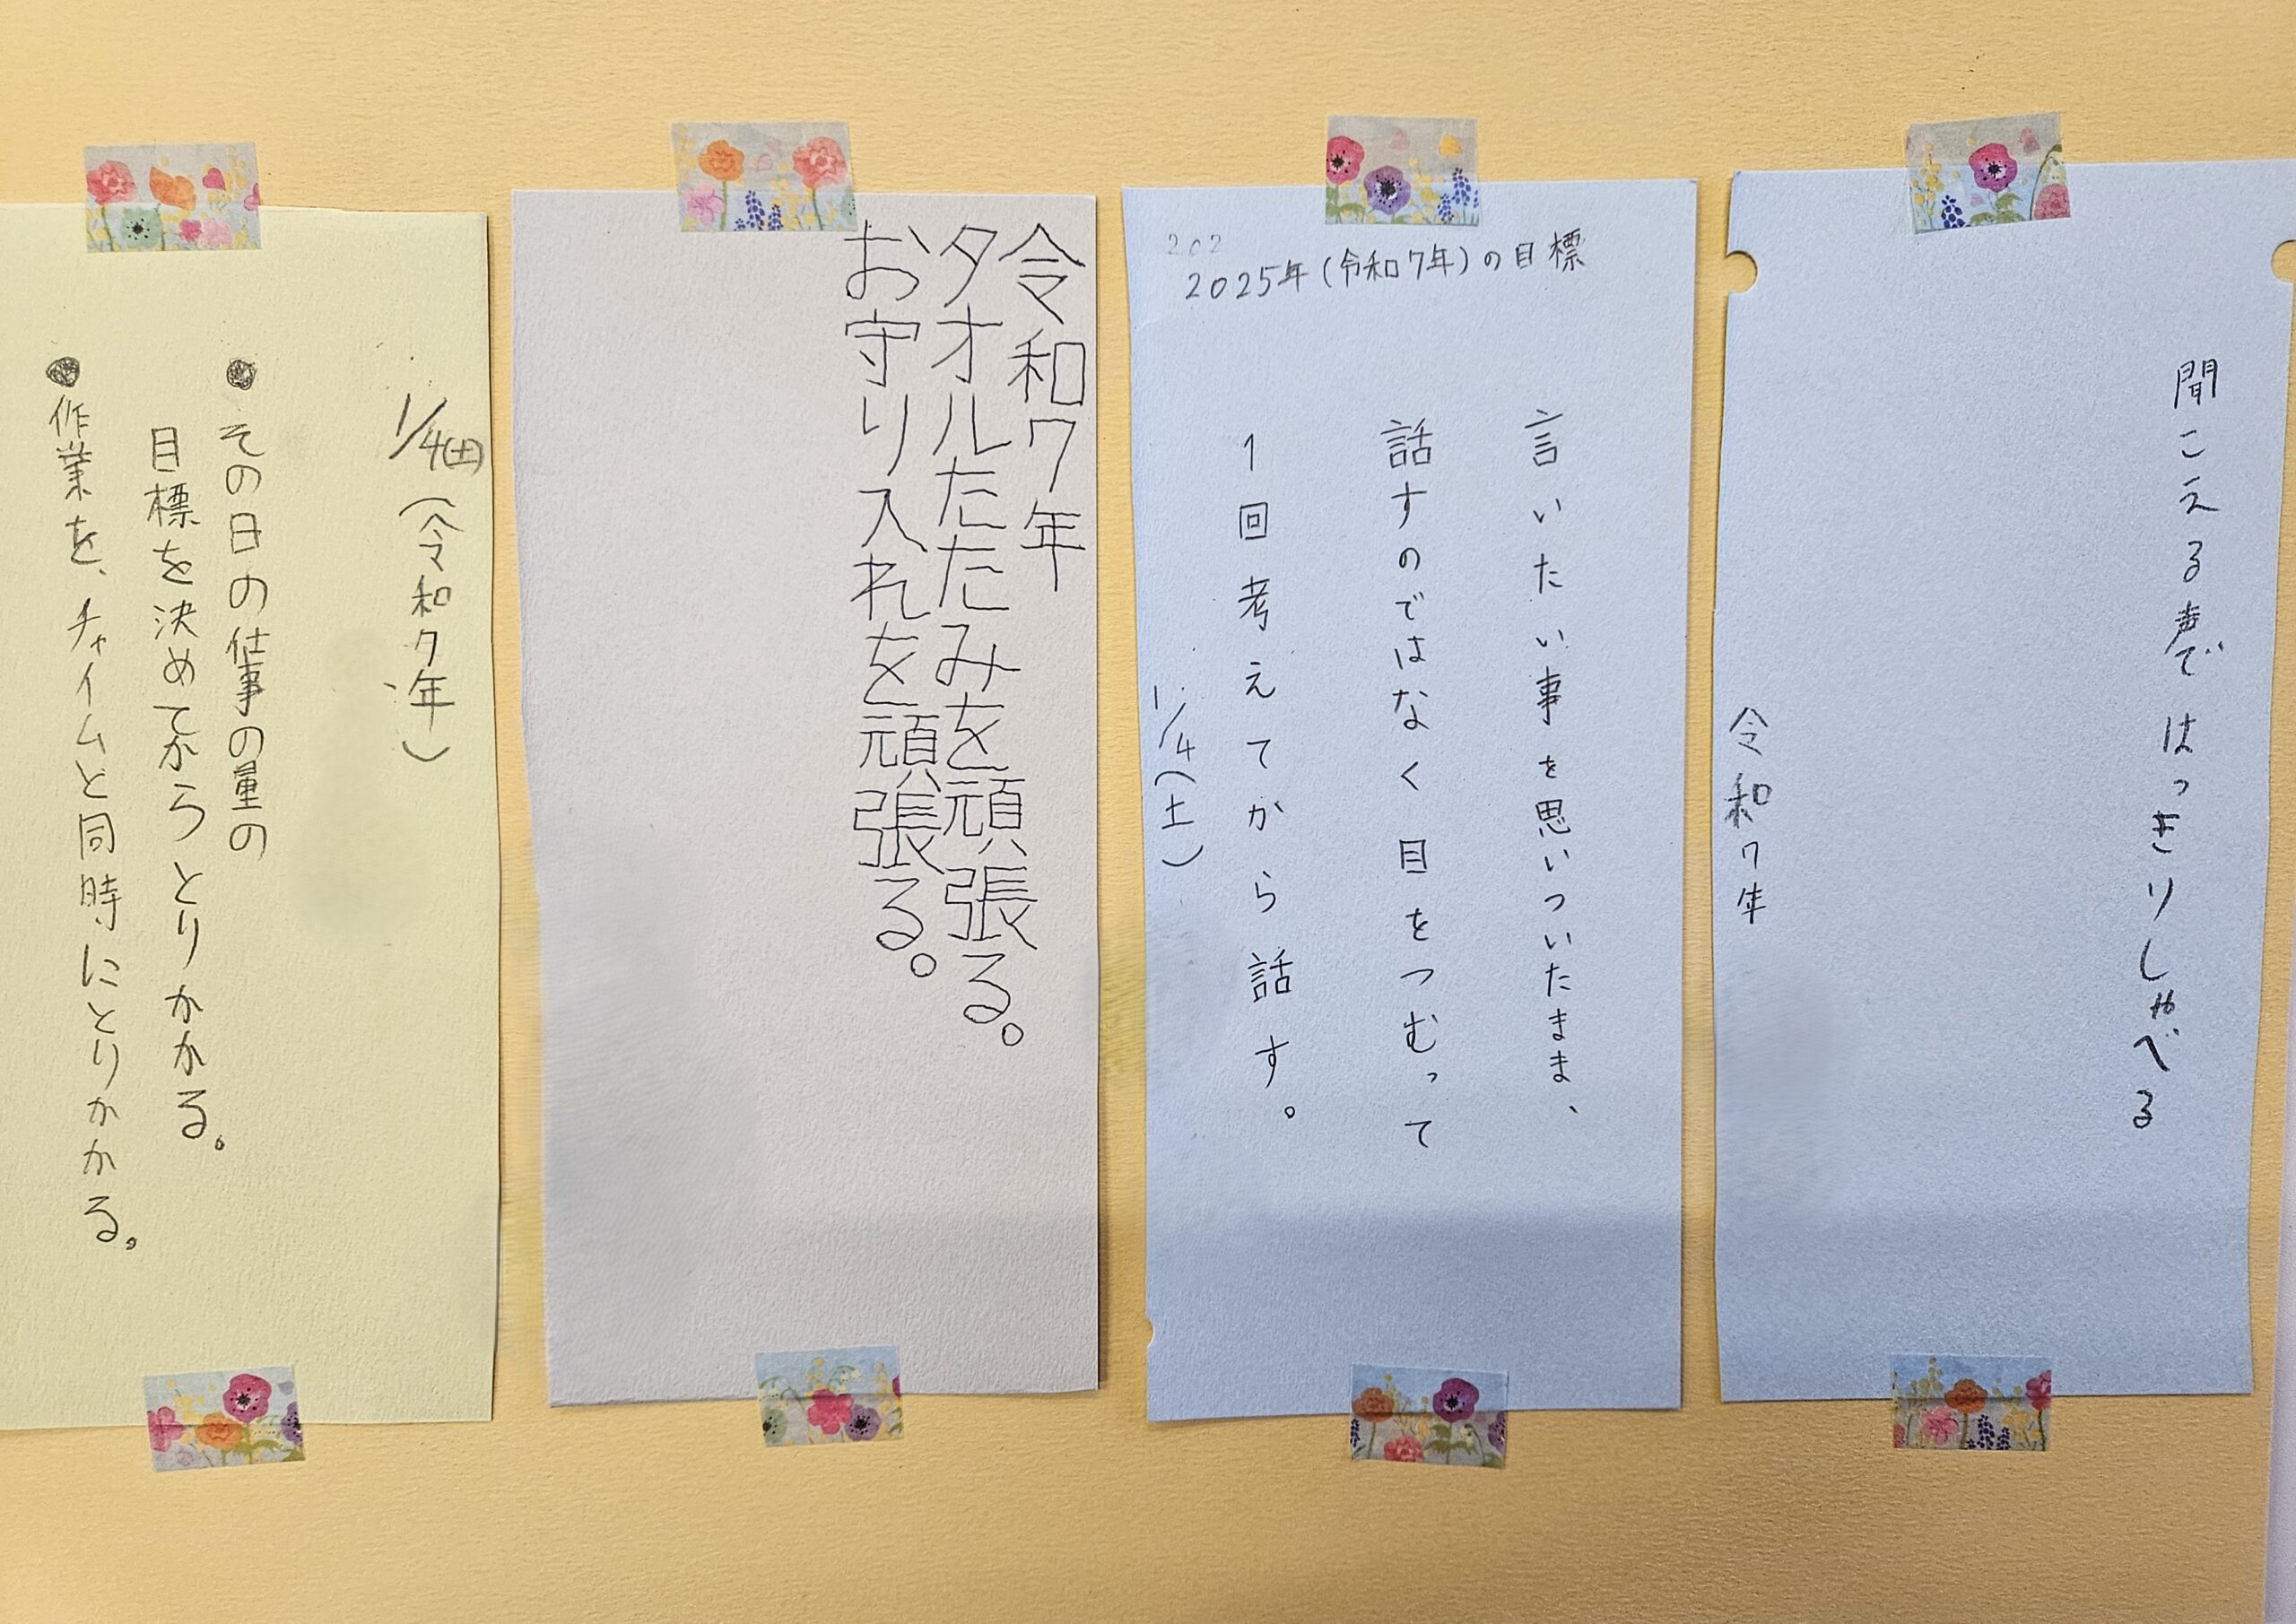 聞こえる声で はっきりしゃべる
令和7年
202
2025年(令和7年)の目標
言いたい事を思いついたまま、
話すのではなく目をつむって
1回考えてから話す。
1/4(土)
令和7年
タオルたたみを頑張る。
お守り入れを頑張る。
1/4(土)(令和7年)
●その日の仕事の量の
目標を決めてからとりかかる。
●作業を、チャイムと同時にとりかかる。